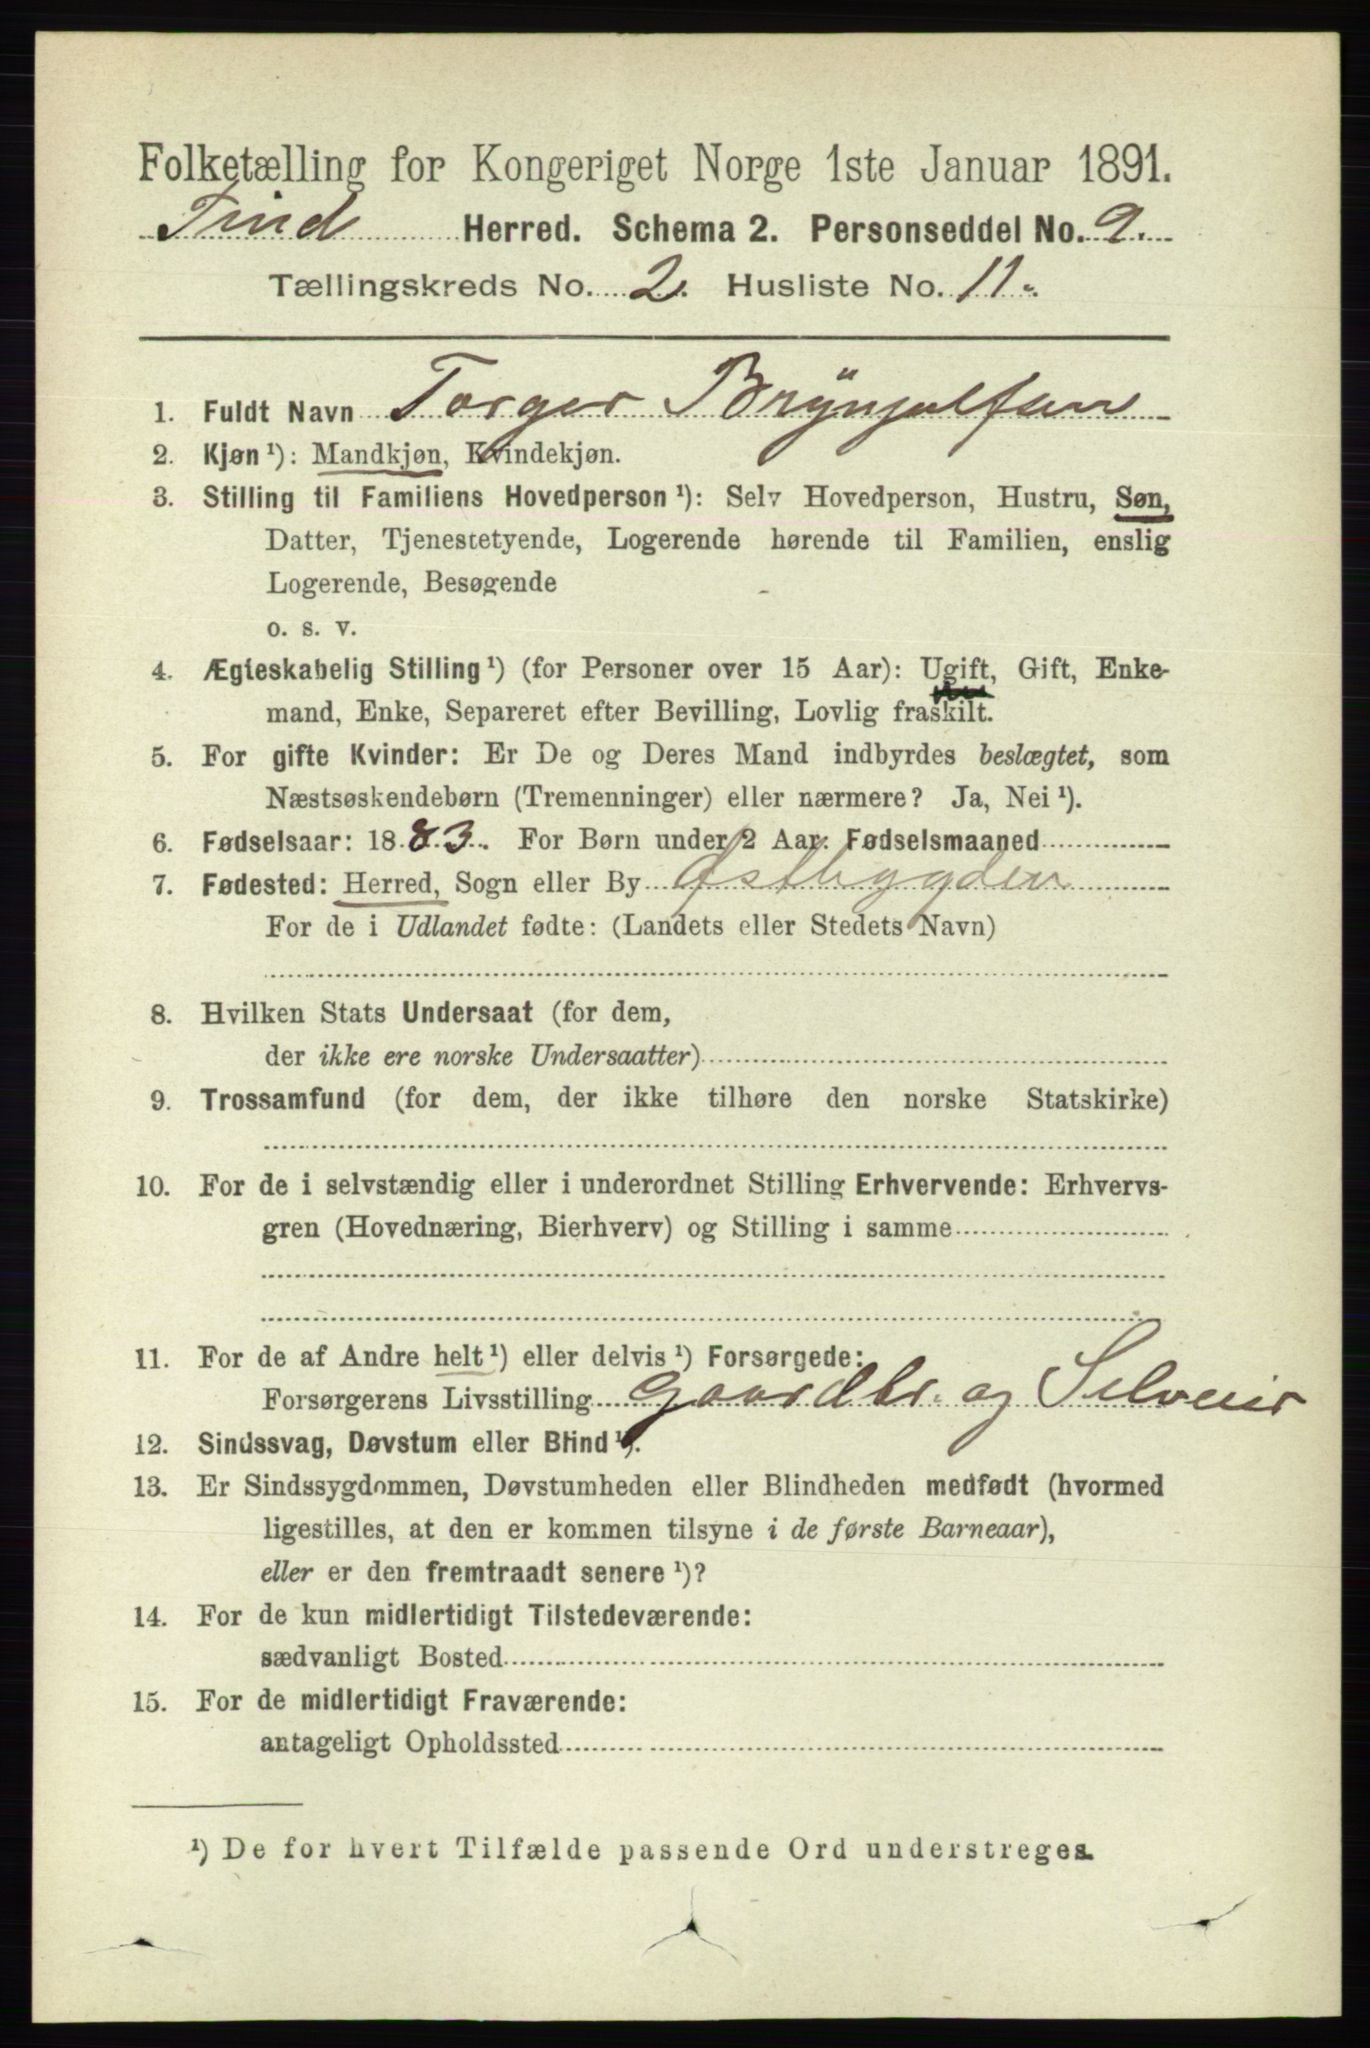 Folketælling for Kongeriget Norge 1ste Januar 1891.
Tind Herred. Schema 2. Personseddel No. 9.
Tællingskreds No. 2. Husliste No. 11.
1. Fuldt Navn Torger Brÿnjulfsen
2. Kjøn ¹): Mandkjøn, Kvindekjøn.
3. Stilling til Familiens Hovedperson ¹): Selv Hovedperson, Hustru, Søn,
Datter, Tjenestetyende, Logerende hørende til Familien, enslig
Logerende, Besøgende
o. s. v.
4. Ægteskabelig Stilling ¹) (for Personer over 15 Aar): Ugift, Gift, Enke-
mand, Enke, Separeret efter Bevilling, Lovlig fraskilt.
5. For gifte Kvinder: Er De og Deres Mand indbyrdes beslægtet, som
Næstsøskendebørn (Tremenninger) eller nærmere? Ja, Nei ¹).
6. Fødselsaar: 1883. For Børn under 2 Aar: Fødselsmaaned
7. Fødested: Herred, Sogn eller By Østbygden
For de i Udlandet fødte: (Landets eller Stedets Navn)
8. Hvilken Stats Undersaat (for dem,
der ikke ere norske Undersaatter)
9. Trossamfund (for dem, der ikke tilhøre den norske Statskirke)
10. For de i selvstændig eller i underordnet Stilling Erhvervende: Erhvervs-
gren (Hovednæring, Bierhverv) og Stilling i samme
11. For de af Andre helt ¹) eller delvis ¹) Forsørgede:
Forsørgerens Livsstilling gaardbr. og Selveier
12. Sindssvag, Døvstum eller Blind ¹).
13. Er Sindssygdommen, Døvstumheden eller Blindheden medfødt (hvormed
ligestilles, at den er kommen tilsyne i de første Barneaar),
eller er den fremtraadt senere ¹)?
14. For de kun midlertidigt Tilstedeværende:
sædvanligt Bosted
15. For de midlertidigt Fraværende:
antageligt Opholdssted
¹) De for hvert Tilfælde passende Ord understreges.